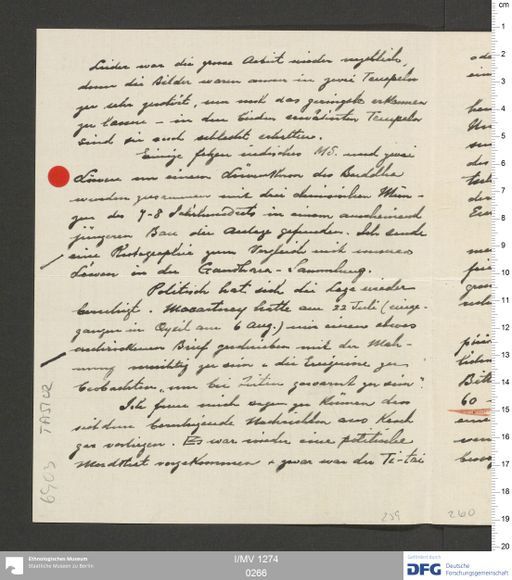 Leider war die grosse Arbeit wieder vergeblich,
denn die Bilder waren immer in zwei Tempeln
zu sehr zerstört, um noch das geringste erkennen
zu lassen – in den beiden erwähnten Tempeln
sind sie auch schlecht erhalten.
Einige Fetzen indisches MS. und zwei
Löwen um einem Löwenthron des Buddha
wurden zusammen mit drei chinesischen Mün-
zen des 7-8 Jahrhunderts in einem anscheinend
jüngeren Bau der Anlage gefunden. Ich sende
eine Photographie zum Vergleich mit unseren
Löwen in der Gandhara-Sammlung.
Politisch hat sich die Lage wieder
beruhigt. Macartney hatte am 22 Juli (einge-
gangen in Qyzil am 6 Aug.) mir einen etwas
erschrockenen Brief geschrieben mit der Mah-
nung vorsichtig zu sein & die Ereignisse zu
beobachten, „um bei Zeiten gewarnt zu sein“
Ich freue mich sagen zu können dass
seitdem beruhigende Nachrichten aus Kasch
gar vorliegen. Es war wieder eine politische
Mordthat vorgekommen & zwar war der Ti-tai
TA 5102
6903
259
260
60 –
Ethnologisches Museum
Staatliche Museen zu Berlin
I/MV 1274
0266
Gefördert durch
DFG Deutsche
Forschungsgemeinschaft
cm
1
2
3
4
5
6
7
8
9
10
11
12
13
14
15
16
17
18
19
20